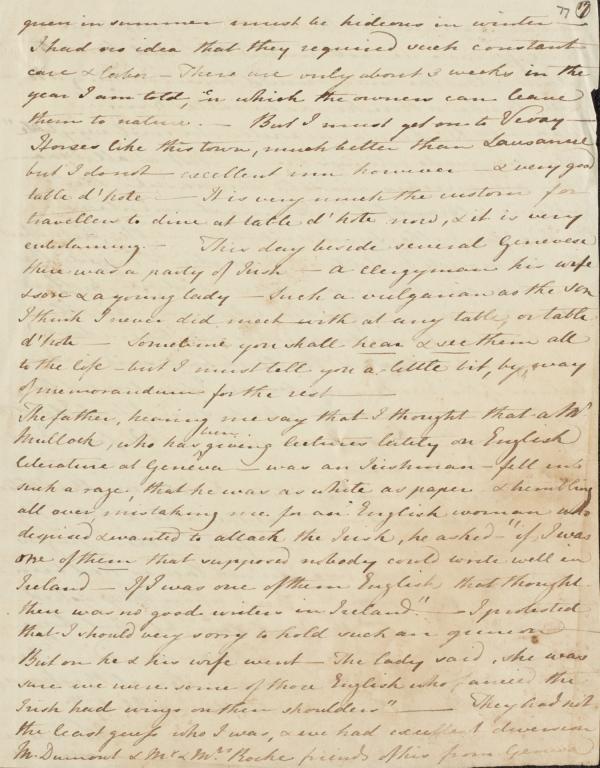 77 (17)
green in summer must be hideous in winter —
I had no idea that they required such constant
care & labor — There are only about 3 weeks in the
year I am told, in which the owners can leave
them to nature. — But I must get on to Vevay —
Horses like this town, much better than Lausanne
but I do not — excellent inn however — & very good
table d'hote — It is very much the custom for
travellers to dine at table d'hote now, & it is very
entertaining — This day beside several Genevese
there was a party of Irish — a clergyman his wife
& son & a young lady — Such a vulgarian as the son
I think I never did meet with at any table, or table
d'hote — Some time you shall hear & see them all
to the life — but I must tell you a little bit, by way
of memorandum for the rest —
The father, hearing me say that I thought that a Mr
Mullock, who has been giving lectures lately on English
literature at Geneva — was an Irishman — fell into
such a rage, that he was as white as paper & trembling
all over, mistaking me for an English woman who
despised & wanted to attack the Irish, he asked — "if I was
one of them that supposed nobody could write well in
Ireland — If I was one of them English that thought
there was no good writers in Ireland." — I protested
that I should very sorry to hold such an opinion —
But on he & his wife went — The lady said, she was
sure we were some of those English who fancied the
Irish had wings on their shoulders" — They had not
the least guess who I was, & we had excellent diversion
M. Dumont & Mr & Mrs Roche friends of his from Geneva